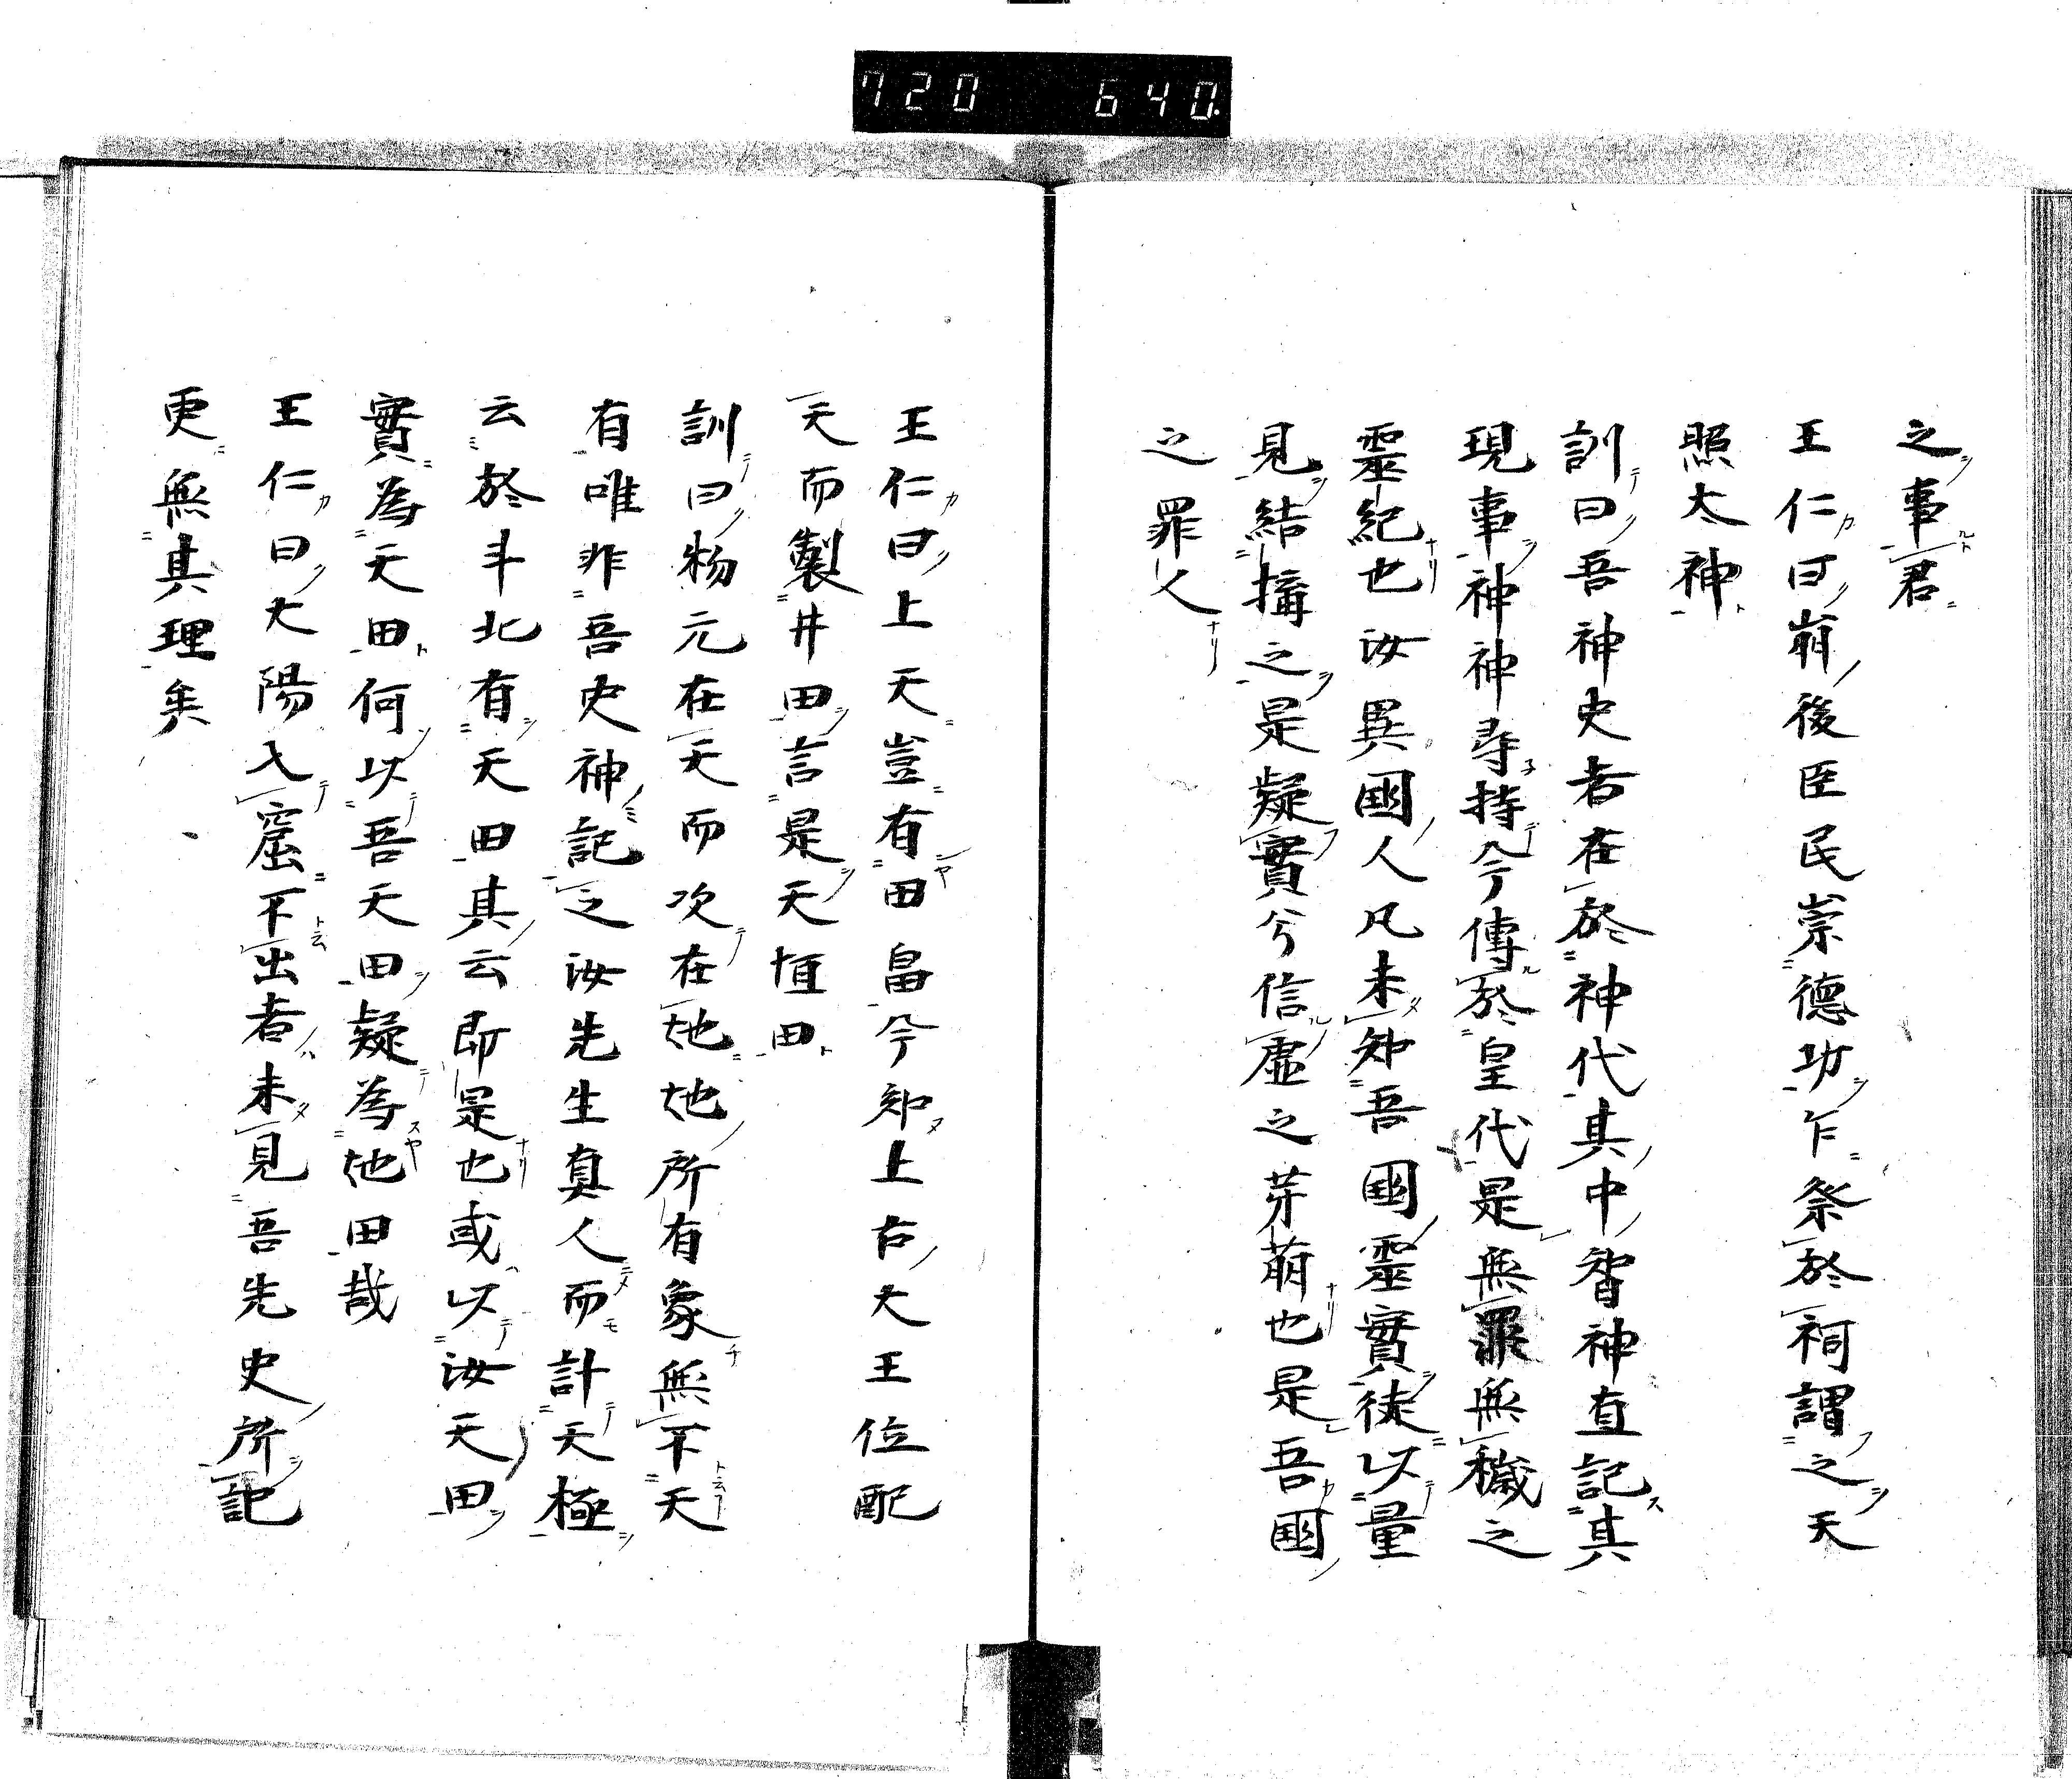 720 640
之事君
王仁曰崩後臣民崇德功乍祭於祠謂之天
照太神
訓曰吾神史者在於神代其中智神直記其
現事神神尋持今傳於皇代是無罪無穢之
靈紀也汝異國人凡未知吾國靈實徒以量
見結搆之是疑實兮信虛之芽萌也是吾國
之罪人
王仁曰上天豈有田畠今知上古大王位配
天而製井田言是天恒田
訓曰物元在天而次在地地所有象無不天
有唯非吾史神記之汝先生真人而計天極
云於斗北有天田其云即是也或以汝天田
實為天田何以吾天田疑為地田哉
王仁曰大陽入窟不出者未見吾先史所記
更無其理矣